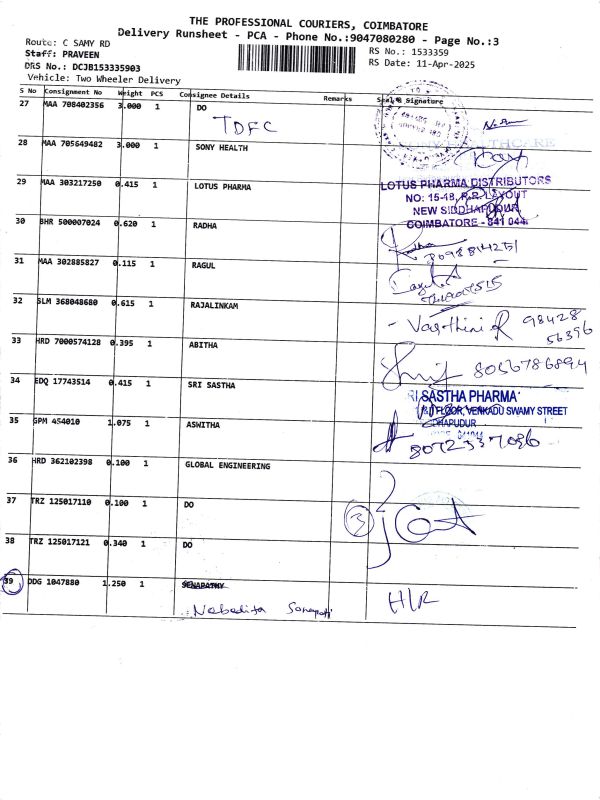 THE PROFESSIONAL COURIERS, COIMBATORE
Delivery Runsheet - PCA - Phone No.:9047080280 - Page No.:3
Route: C SAMY RD
RS No.: 1533359
Staff: PRAVEEN
RS Date: 11-Apr-2025
DRS No.: DCJB153335903
Vehicle: Two Wheeler Delivery
S No Consignment No Weight PCS Consignee Details Remarks Seal & Signature
27 MAA 708402356 3.000 1 DO
TDFC
28 MAA 705649482 3.000 1 SONY HEALTH
29 MAA 303217250 0.415 1 LOTUS PHARMA
LOTUS PHARMA DISTRIBUTORS
NO: 15-18, R.R. LAYOUT
NEW SIDDHAPUDUR
COIMBATORE - 641 044
30 BHR 500007024 0.620 1 RADHA
31 MAA 302885827 0.115 1 RAGUL
32 SLM 368048680 0.615 1 RAJALINKAM
- Vasthini 98428
56396
33 HRD 7000574128 0.395 1 ABITHA
8056786894
34 EDQ 17743514 0.415 1 SRI SASTHA
SASTHA PHARMA
FLOOR, VENKADU SWAMY STREET
35 GPM 454010 1.075 1 ASWITHA
8072337096
36 HRD 362102398 0.100 1 GLOBAL ENGINEERING
37 TRZ 125017110 0.100 1 DO
3
38 TRZ 125017121 0.340 1 DO
39 DDG 1047880 1.250 1 SENAPATHY
H/R